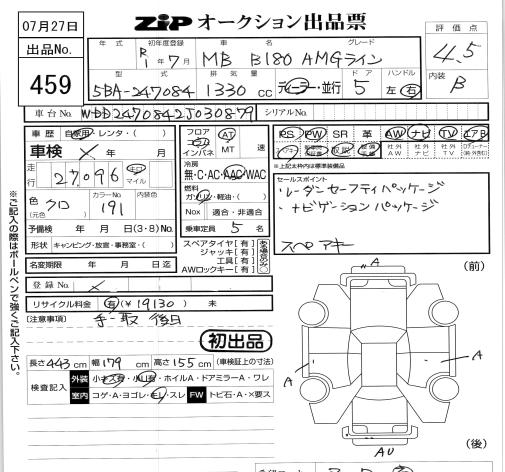 07月27日
出品No.
459
ZIP オークション出品票
評価点
4.5
内装
B
年式 初年度登録 車名 グレード
R1年7月 MB B180 AMGライン
型式 排気量 ドア ハンドル
5BA-247084 1330 cc ディーラー・並行 5 左・右
車台No. WDD2470842J030879 シリアルNo.
車歴 自家用 レンタ・( )
車検 × 年 月
走行 27,096 キロ マイル
色 クロ (元色) カラーNo. 191 内装色
予備検 年 月 日(3・8)No.
形状 キャンピング・放宣・事務室・( )
名変期限 年 月 日迄
フロア コラム インパネ AT MT 速
冷房
無・C・AC・AAC・WAC
燃料
ガソリン・軽油・( )
Nox 適合・非適合
乗車定員 5 名
スペアタイヤ[有]
ジャッキ[有]
工具[有]
AWロックキー[有]
PS PW SR 革 AW ナビ TV エアB
※上記太枠内は標準装備品
セールスポイント
・レーダーセーフティパッケージ
・ナビゲーションパッケージ
スペアキー
登録No. ×
リサイクル料金 有(¥19130) 未
[注意事項] 手取 後日
初出品
長さ 443 cm 幅 179 cm 高さ 155 cm (車検証上の寸法)
検査記入 外装 小キズ有・小凹有・ホイルA・ドアミラーA・ワレ
室内 コゲ・A・ヨゴレ・モレ・スレ FW トビ石・A・×要ス
※ご記入の際はボールペンで強くご記入下さい。
(前)
A
A
A
AU
(後)